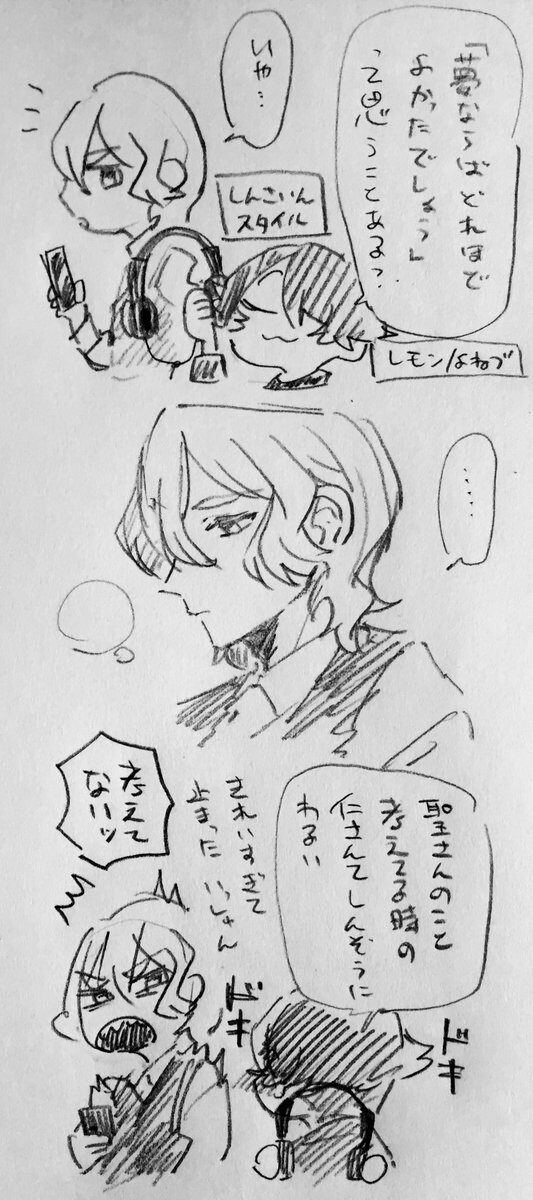 「夢ならばどれほで
よかったでしょう」
って思うことある?
いや…
しんさいん
スタイル
レモン/よねづ
……
聖さんのこと
考えてる時の
仁さんてしんぞうに
わるい
きれいすぎて
止まった いっしゅん
考えて
ないッ
ドキ
ドキ